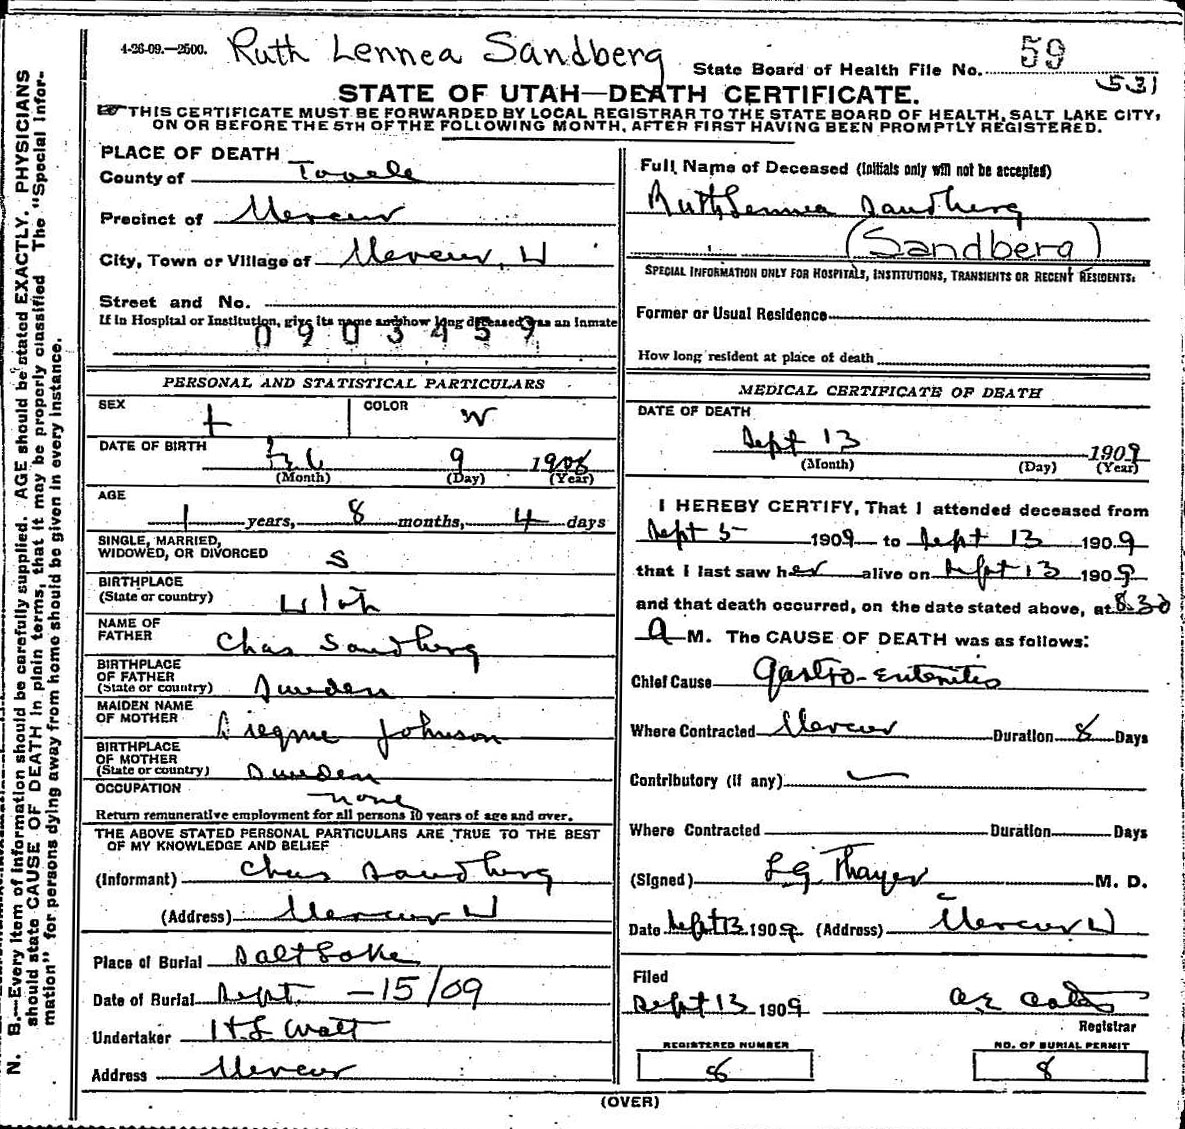 4-26-09.—2500. Ruth Lennea Sandberg
State Board of Health File No. 59
531
STATE OF UTAH—DEATH CERTIFICATE.
THIS CERTIFICATE MUST BE FORWARDED BY LOCAL REGISTRAR TO THE STATE BOARD OF HEALTH, SALT LAKE CITY,
ON OR BEFORE THE 5TH OF THE FOLLOWING MONTH, AFTER FIRST HAVING BEEN PROMPTLY REGISTERED.
PLACE OF DEATH
County of Tooele
Precinct of Mercur
City, Town or Village of Mercur, U
Street and No.
If in Hospital or Institution, give its name and how long deceased was an inmate
0903459
PERSONAL AND STATISTICAL PARTICULARS
SEX f COLOR W
DATE OF BIRTH Feb 9 1908
(Month) (Day) (Year)
AGE
1 years, 8 months, 4 days
SINGLE, MARRIED,
WIDOWED, OR DIVORCED S
BIRTHPLACE
(State or country) Utah
NAME OF
FATHER Chas Sandberg
BIRTHPLACE
OF FATHER
(State or country) Sweden
MAIDEN NAME
OF MOTHER Johnson
BIRTHPLACE
OF MOTHER
(State or country) Sweden
OCCUPATION none
Return remunerative employment for all persons 10 years of age and over.
THE ABOVE STATED PERSONAL PARTICULARS ARE TRUE TO THE BEST
OF MY KNOWLEDGE AND BELIEF
(Informant) Chas Sandberg
(Address) Mercur U
Place of Burial Salt Lake
Date of Burial Sept. -15/09
Undertaker H L Watt
Address Mercur
Full Name of Deceased (Initials only will not be accepted)
Ruth Lennea Sandberg
(Sandberg)
SPECIAL INFORMATION ONLY FOR HOSPITALS, INSTITUTIONS, TRANSIENTS OR RECENT RESIDENTS:
Former or Usual Residence
How long resident at place of death
MEDICAL CERTIFICATE OF DEATH
DATE OF DEATH
Sept 13 1909
(Month) (Day) (Year)
I HEREBY CERTIFY, That I attended deceased from
Sept 5 1909 to Sept 13 1909
that I last saw her alive on Sept 13 1909
and that death occurred, on the date stated above, at 8.30
a M. The CAUSE OF DEATH was as follows:
Chief Cause Gastro-enteritis
Where Contracted Mercur Duration 8 Days
Contributory (if any)
Where Contracted Duration Days
(Signed) L.G. Thayer M. D.
Date Sept 13 1909 (Address) Mercur U
Filed
Sept 13 1909
Registrar
REGISTERED NUMBER
8
NO. OF BURIAL PERMIT
8
(OVER)
N. B.—Every item of information should be carefully supplied. AGE should be stated EXACTLY. PHYSICIANS
should state CAUSE OF DEATH in plain terms, that it may be properly classified The "Special Infor-
mation" for persons dying away from home should be given in every instance.